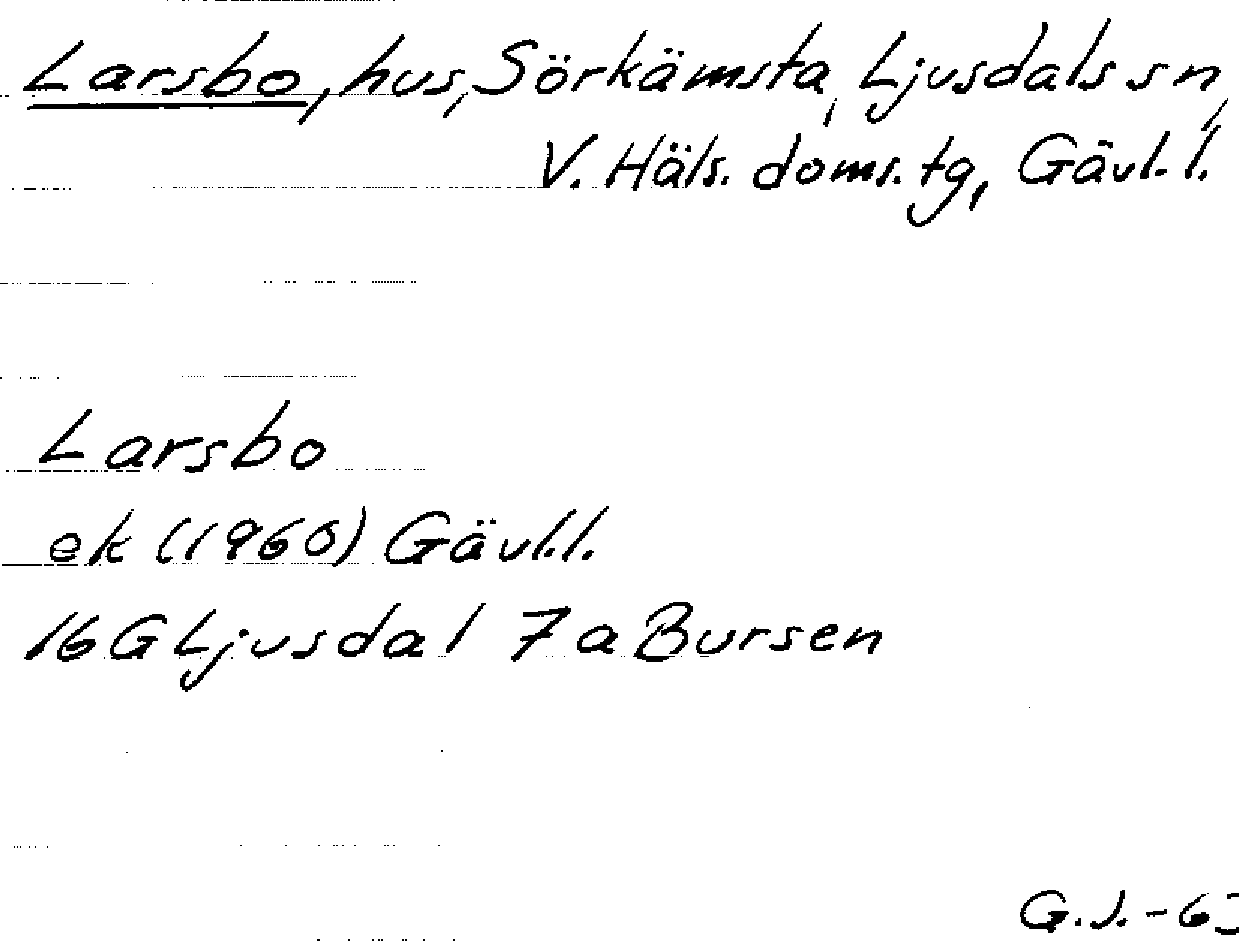 Larsbo, hus, Sörkämsta, Ljusdals sn,
V. Häls. doms. tg, Gävl. l.
Larsbo
ek (1960) Gävl.l.
16G Ljusdal 7a Bursen
G.J.-63